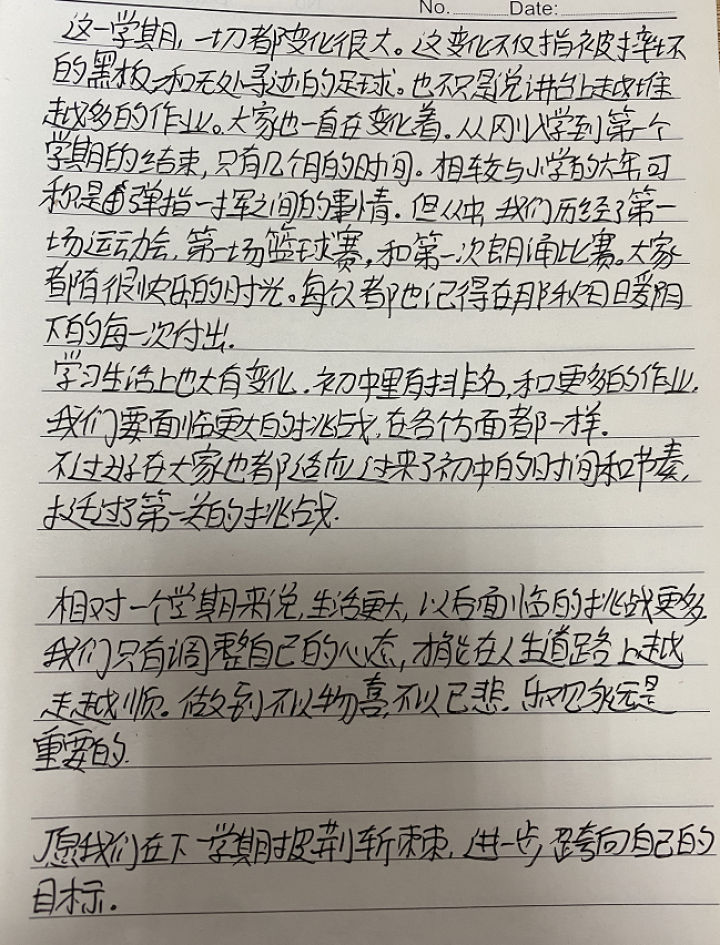 No. Date:
这一学期，一切都变化很大。这变化不仅指被摔坏
的黑板和无处寻迹的足球。也不只是说讲台上越堆
越多的作业。大家也一直在变化着。从刚入学到第一个
学期的结束，只有几个月的时间。相较与小学的六年，可
称是弹指一挥之间的事情。但从中，我们历经了第一
场运动会，第一场篮球赛，和第一次朗诵比赛。大家
都有很快乐的时光。每次都也记得在那秋初日暖阳
下的每一次付出。
学习生活上也大有变化。初中里有排名，和更多的作业。
我们要面临更大的挑战，在各个方面都一样。
不过好在大家也都适应过来了初中的时间和节奏，
挺过了第一关的挑战。
相对一个学期来说，生活更大，以后面临的挑战更多
我们只有调整自己的心态，才能在人生道路上越
走越顺。做到不以物喜，不以己悲。乐观永远是
重要的。
愿我们在下一学期披荆斩棘，进一步跨向自己的
目标。